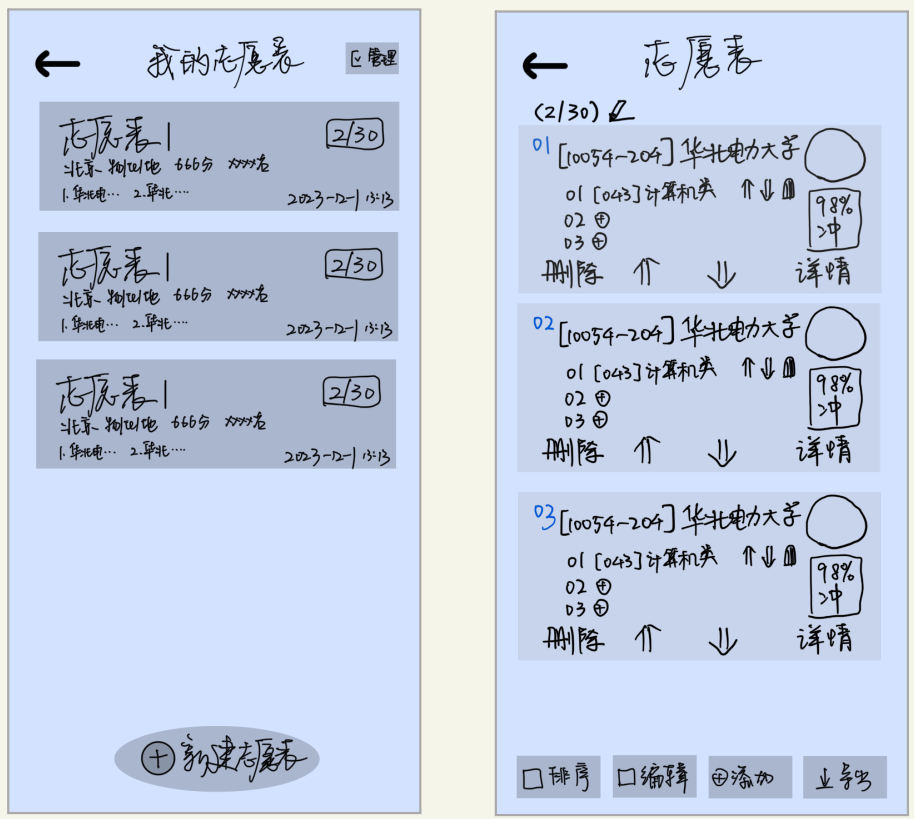 我的志愿表
管理
志愿表1
2/30
北京 物化地 666分 xxxx名
1.华北电… 2.华北…
2023-12-1 13:13
志愿表1
2/30
北京 物化地 666分 xxxx名
1.华北电… 2.华北…
2023-12-1 13:13
志愿表1
2/30
北京 物化地 666分 xxxx名
1.华北电… 2.华北…
2023-12-1 13:13
新建志愿表
志愿表
(2/30)
01 [10054~204] 华北电力大学
01 [043] 计算机类
98%
冲
02
03
删除 详情
02 [10054~204] 华北电力大学
01 [043] 计算机类
98%
冲
02
03
删除 详情
03 [10054~204] 华北电力大学
01 [043] 计算机类
98%
冲
02
03
删除 详情
排序 编辑 添加 导出